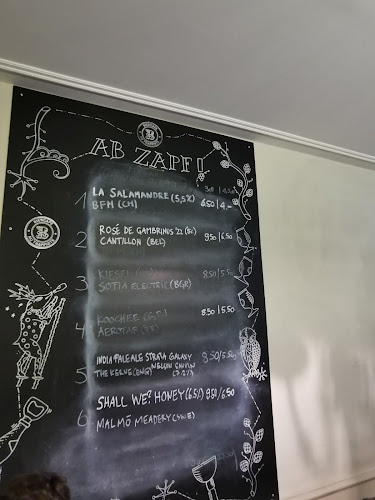 AB ZAPF!
1 LA SALAMANDRE (5,5%)
BFM (CH) 6.50/4.-
2 ROSÉ DE GAMBRINUS '22 (5%)
CANTILLON (BEL) 9.50/6.50
3 KIESEL 8.50/5.50
SOFIA ELECTRIC (BGR)
4 KOOCHEE 8.50/5.50
5 INDIA PALE ALE STRATA GALAXY
NELSON SAUVIN 9.50/5.50
THE KERNEL (ENG) (7.2%)
6 SHALL WE? HONEY (6.5%) 9.50/6.50
MALMÖ MEADERY (SWE)